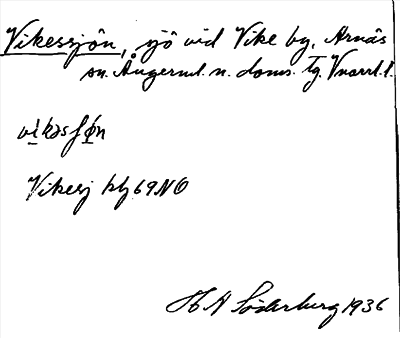 Vikessjön, sjö vid Vike by, Arnäs
sn. Ångerml. n. doms. Tg. Vnorrl. l.
vi̲kəsʃø̲n
Vikesj kbl 69NO
H A Söderberg 1936